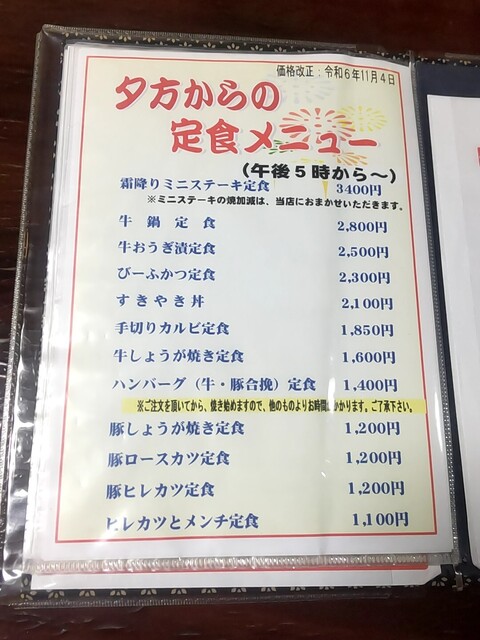 価格改正:令和6年11月4日
夕方からの
定食メニュー
(午後5時から~)
霜降りミニステーキ定食 3400円
※ミニステーキの焼加減は、当店におまかせいただきます。
牛鍋定食 2,800円
牛おうぎ漬定食 2,500円
びーふかつ定食 2,300円
すきやき丼 2,100円
手切りカルビ定食 1,850円
牛しょうが焼き定食 1,600円
ハンバーグ(牛・豚合挽)定食 1,400円
※ご注文を頂いてから、焼き始めますので、他のものよりお時間がかかります。ご了承下さい。
豚しょうが焼き定食 1,200円
豚ロースカツ定食 1,200円
豚ヒレカツ定食 1,200円
ヒレカツとメンチ定食 1,100円